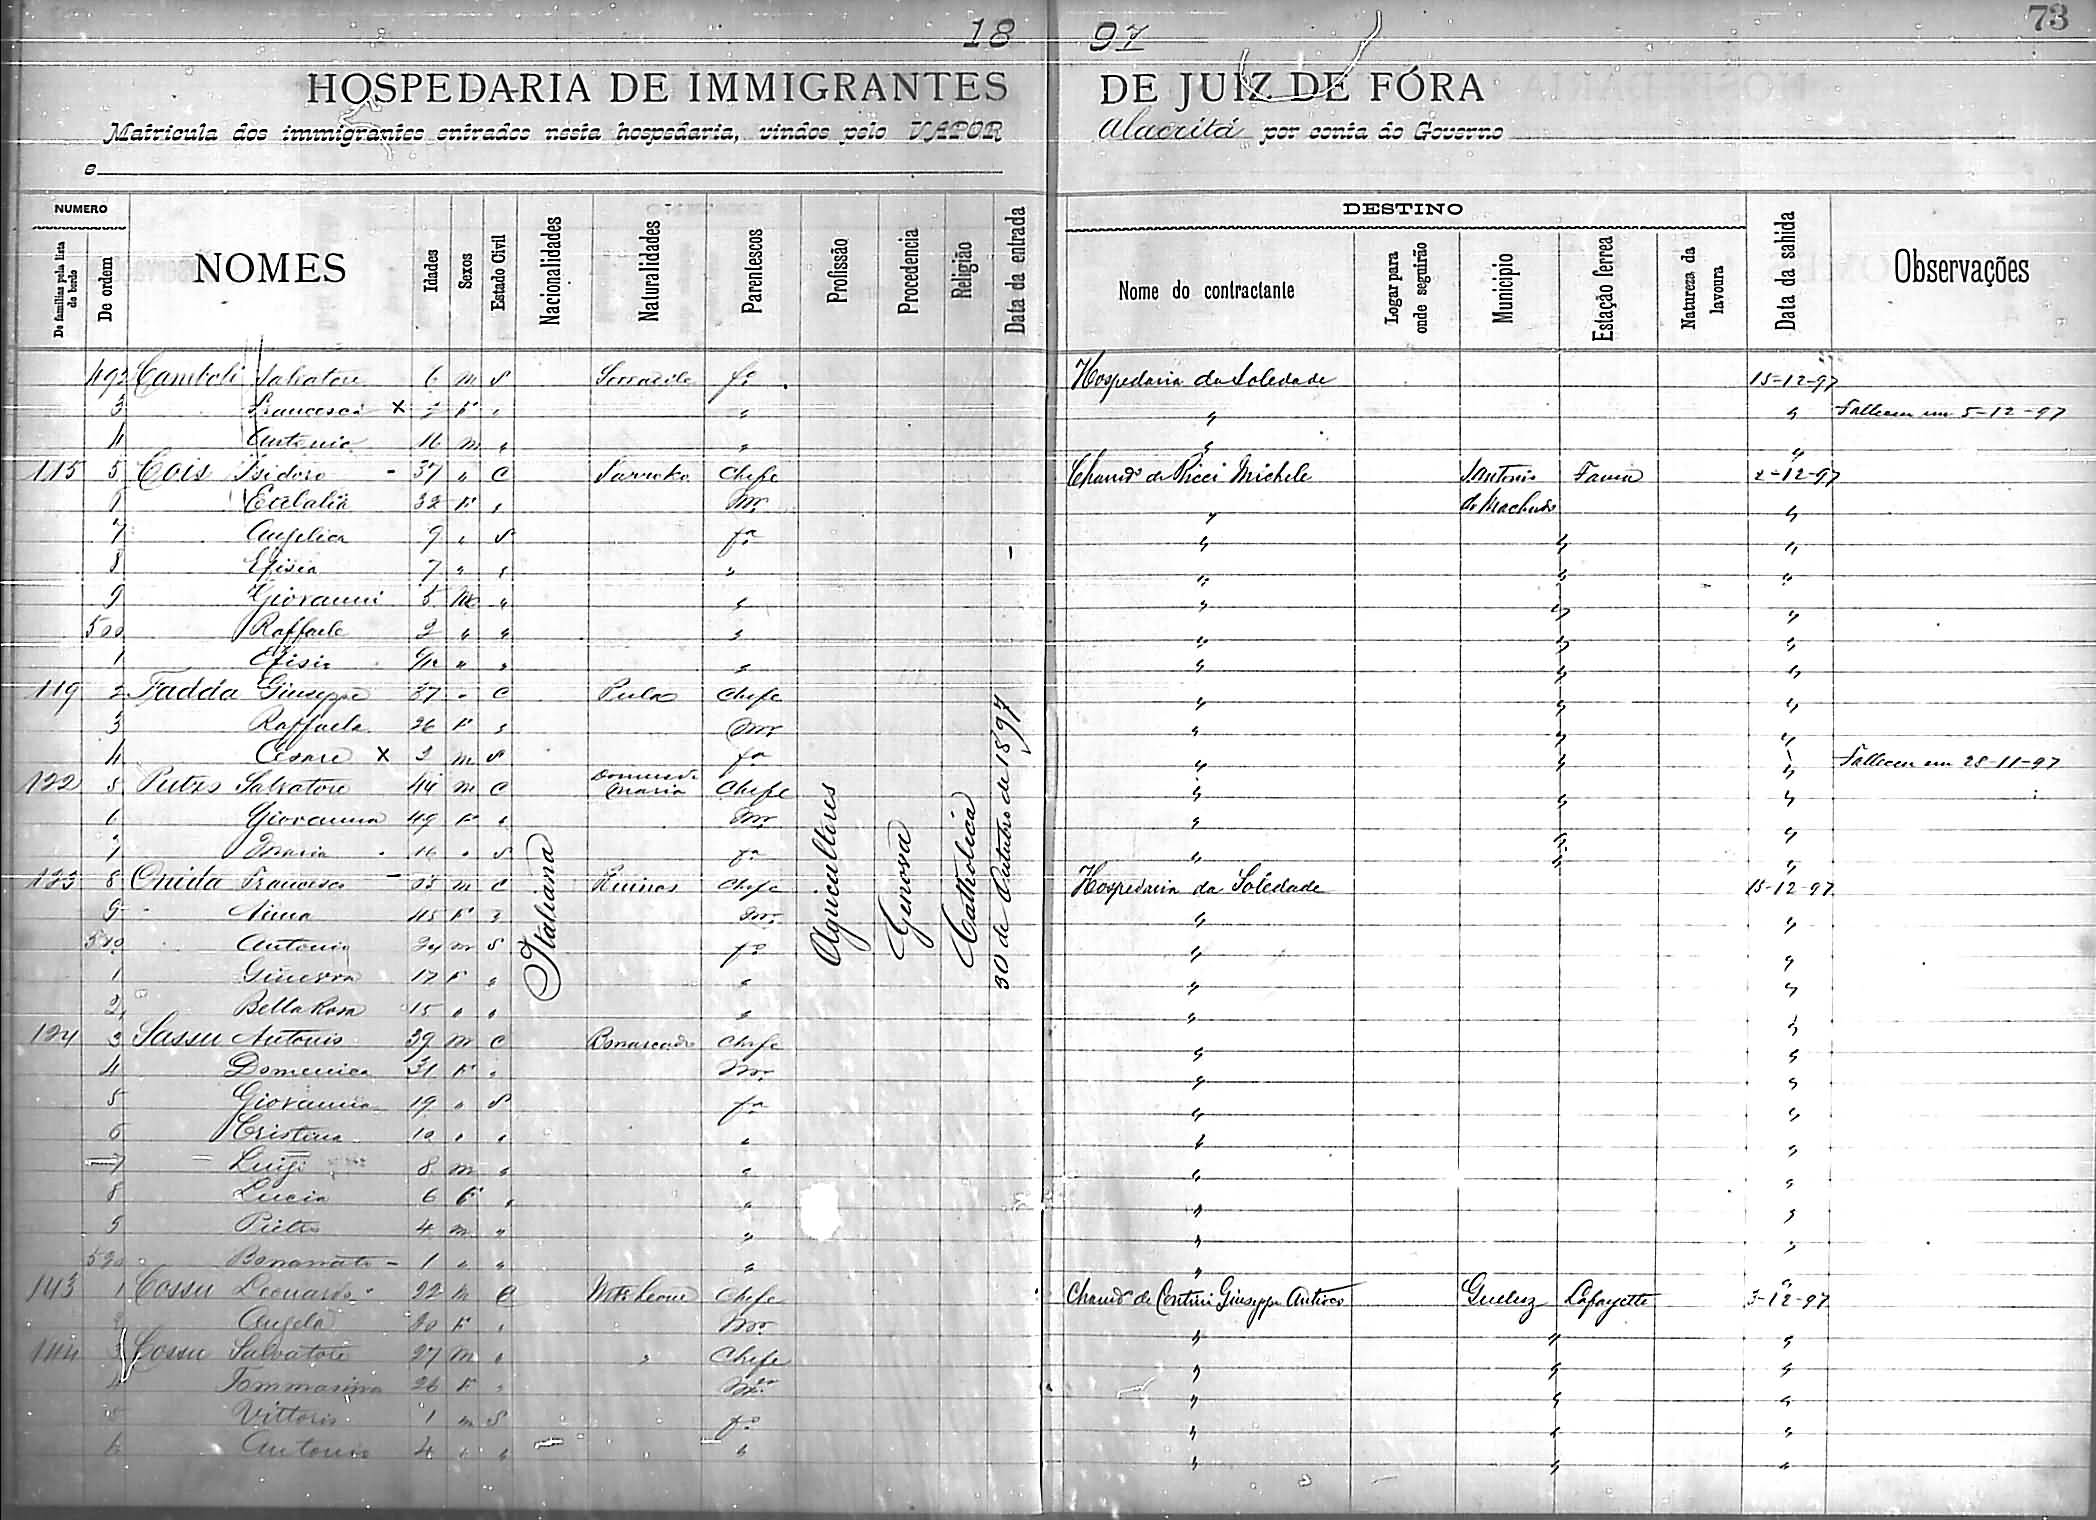 73
18 97
HOSPEDARIA DE IMMIGRANTES DE JUIZ DE FÓRA
Matricula dos immigrantes entrados nesta hospedaria, vindos pelo VAPOR Alacritá por conta do Governo
e
NUMERO
De familias pela lista de bordo
De ordem
NOMES
Idades
Sexos
Estado Civil
Nacionalidades
Naturalidades
Parentescos
Profissão
Procedencia
Religião
Data da entrada
DESTINO
Nome do contractante
Logar para onde seguirão
Municipio
Estação ferrea
Natureza da lavoura
Data da sahida
Observações
492 Camboli Salvatore 6 m S fo Hospedaria da Soledade 15-12-97
3 Francesca x F " " " " Falleceu em 5-12-97
4 Antonio 16 m " " " "
115 5 Cois Isidoro 37 " C Sarroko Chefe Chamdo de Ricci Michele S. Antonio Fama 2-12-97
Eulalia 32 F " Mr do Machado " "
7 Angelica 9 " S fa " " "
8 Efisia 7 " " " " " "
9 Giovanni 5 M " " " " "
500 Raffaele 2 " " " " " "
1 Efisio " " " " " "
119 2 Fadda Giuseppe 37 " C Pula Chefe " " "
3 Raffaela 26 F " Mr " " "
4 Cesare x m S fo " " " Falleceu em 28-11-97
122 5 Putzo Salvatore 44 m C Domus de Maria Chefe " " "
6 Giovanna 49 F " Mr " " "
7 Maria 16 " S fa " " "
123 8 Onida Francesco m C Ruinas Chefe Hospedaria da Soledade 15-12-97
9 Anna 45 F " Mr " "
510 Antonio 24 m S fo " "
1 Ginevra 17 F " " " "
2 Bella Rosa 15 " " " " "
124 3 Sassu Antonio 39 m C Bonarcado Chefe " "
4 Domenica 31 F " Mr " "
5 Giovanna 19 " S fa " "
6 Cristina 10 " " " " "
7 Luigi 8 m " " " "
8 Lucia 6 F " " " "
9 Pietro 4 m " " " "
520 Bonamato 1 " " " " "
143 1 Cossu Leonardo 22 m C Mte Leone Chefe Chamdo de Contini Giuseppe Antioco Queluz Lafayette 3-12-97
2 Angela 20 F " Mr " " "
144 3 Cossu Salvatore 27 m " " Chefe " " "
4 Tommasina 26 F " Mr " " "
5 Vittorio 1 m S fo " " "
6 Antonio 4 " " " " " "
Italiana
Agricultores
Genova
Catholica
30 de Outubro de 1897